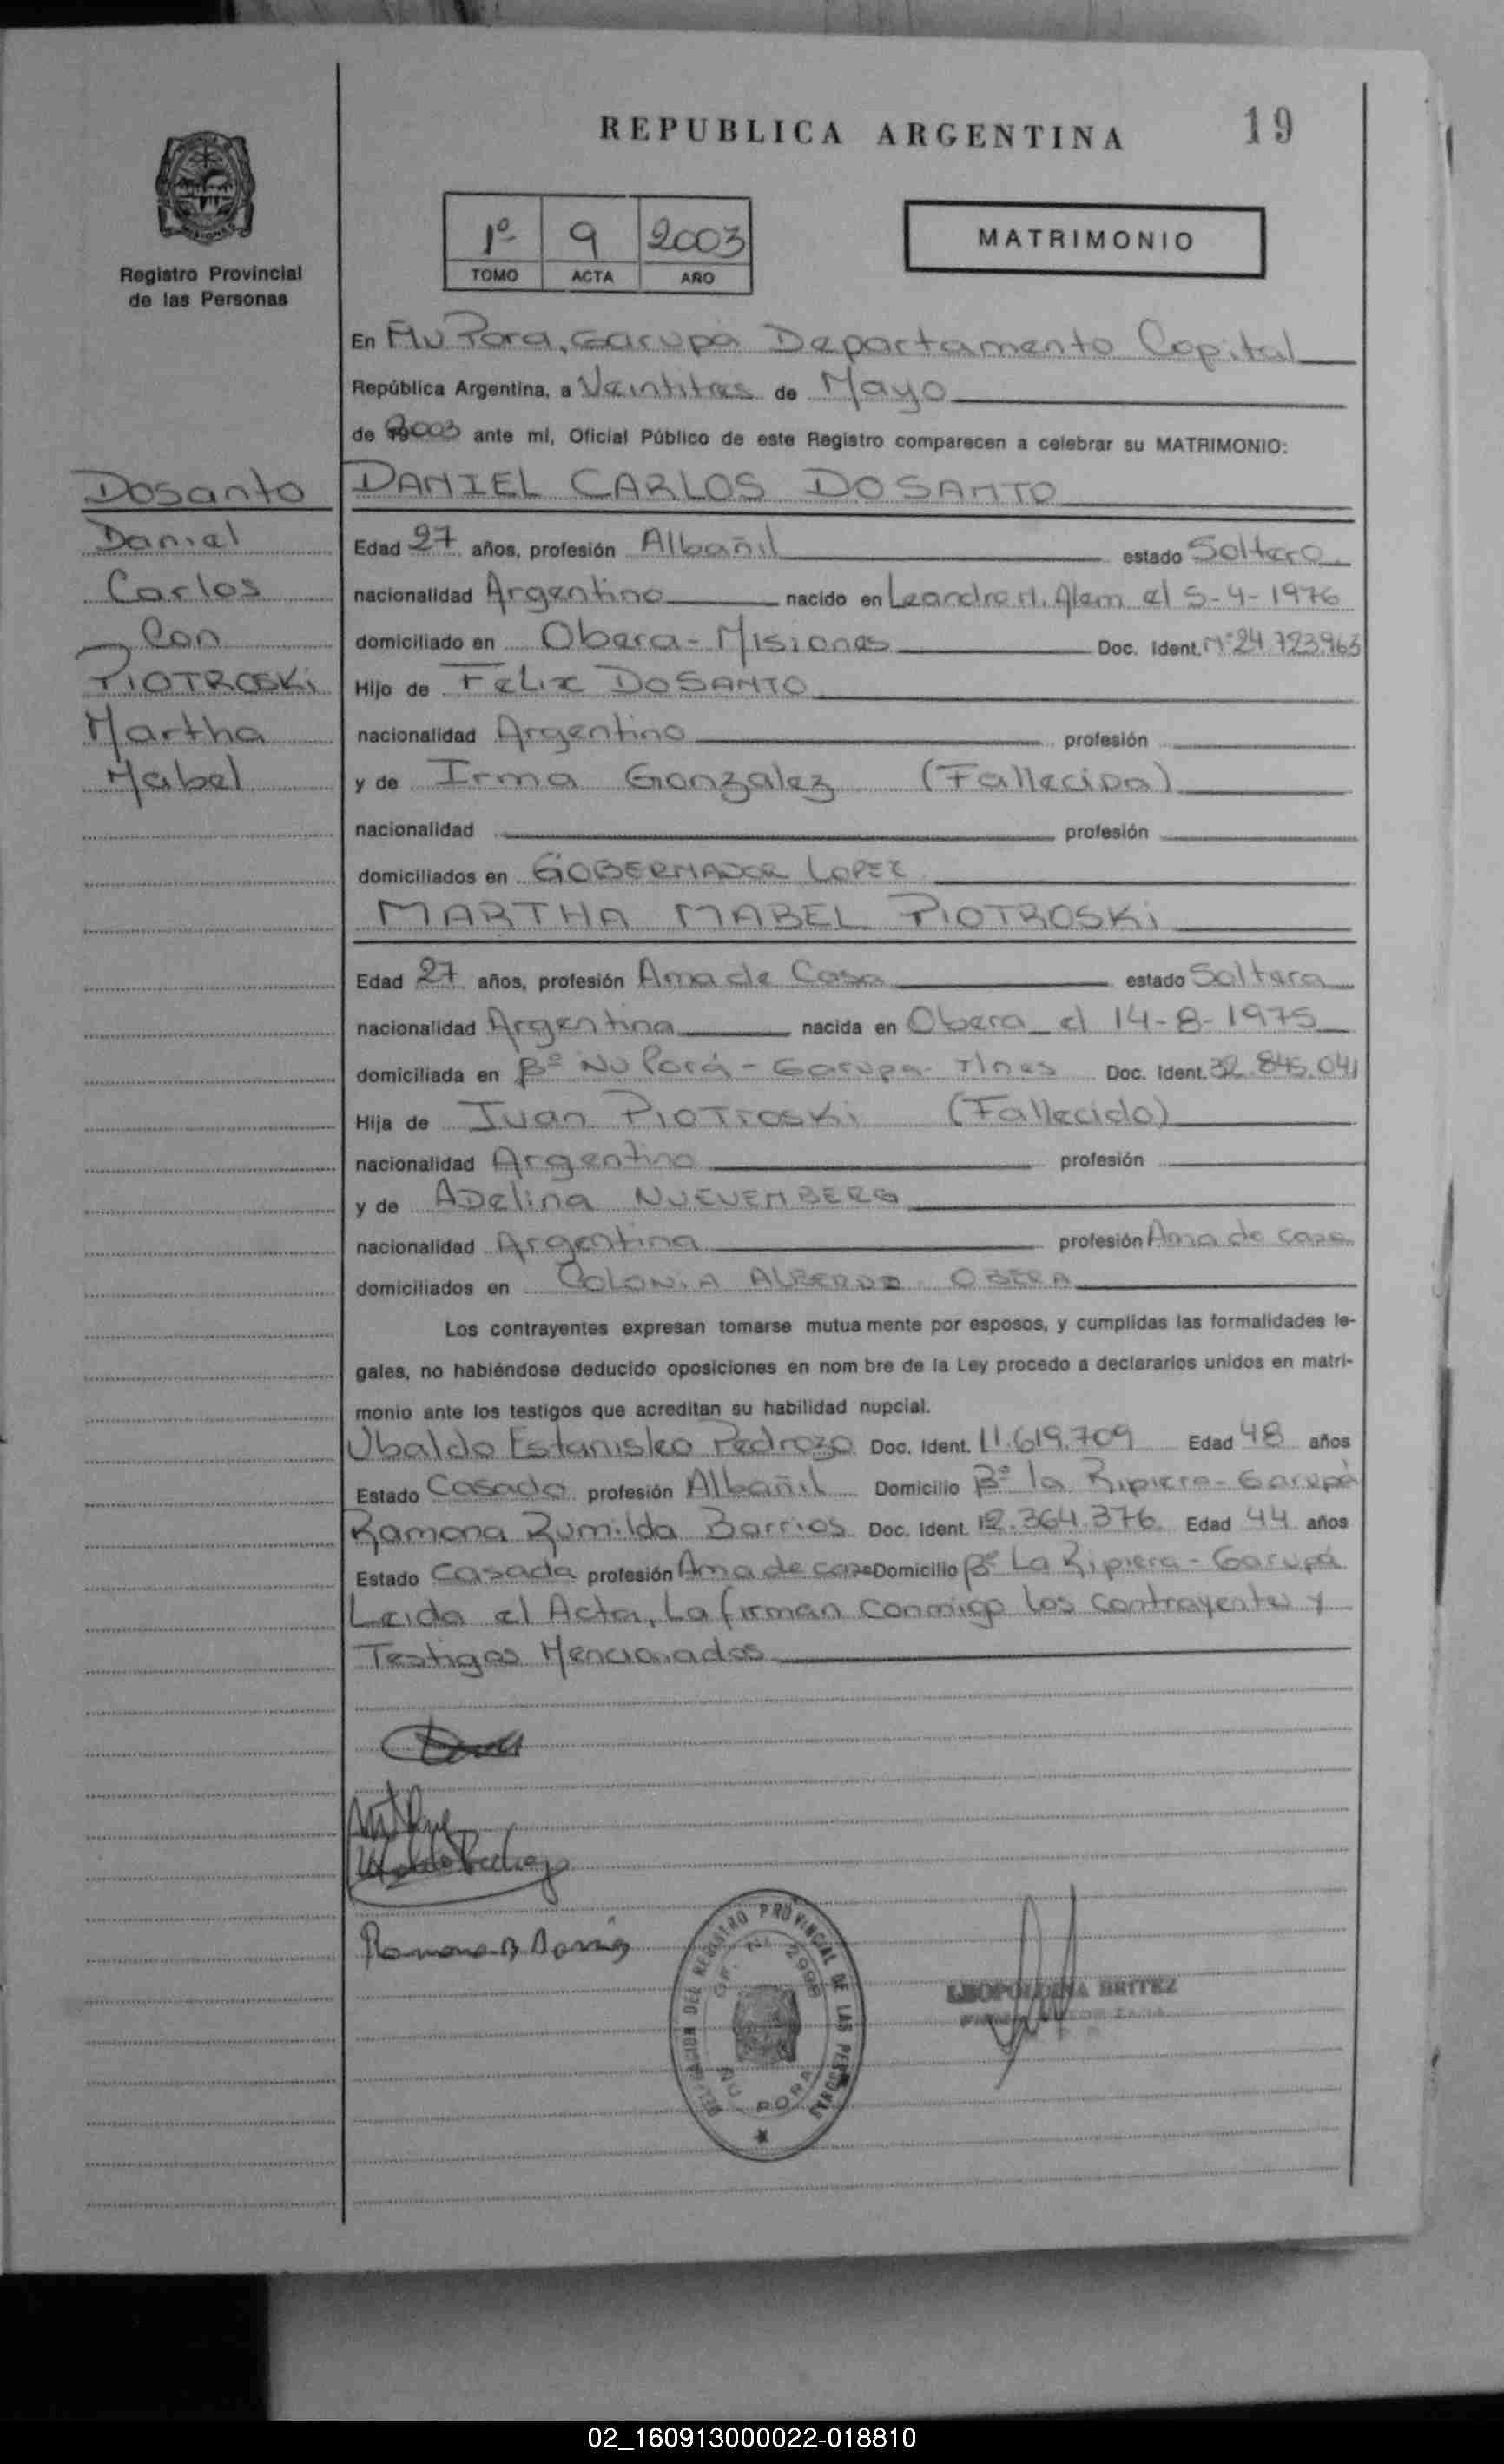 REPUBLICA ARGENTINA
19
Registro Provincial
de las Personas
1º 9 2003
TOMO ACTA AÑO
MATRIMONIO
En Ñu Pora, Garupá Departamento Capital
República Argentina, a Veintitres de Mayo
de 2003 ante mí, Oficial Público de este Registro comparecen a celebrar su MATRIMONIO:
Dosanto
Daniel
Carlos
Con
PIOTROSKi
Martha
Mabel
DANIEL CARLOS DOSANTO
Edad 27 años, profesión Albañil estado Soltero
nacionalidad Argentino nacido en Leandro N. Alem el 5-4-1976
domiciliado en Obera - Misiones Doc. Ident. Nº 24.723.963
Hijo de Felix DOSANTO
nacionalidad Argentino profesión
y de Irma Gonzalez (Fallecida)
nacionalidad profesión
domiciliados en GOBERNADOR LOPEZ
MARTHA MABEL PIOTROSKi
Edad 27 años, profesión Ama de Casa estado Soltera
nacionalidad Argentina nacida en Obera el 14-8-1975
domiciliada en Bº Ñu Porá - Garupa - Mnes Doc. Ident. 32.845.041
Hija de Juan PIOTroski (Fallecido)
nacionalidad Argentino profesión
y de ADelina NUEVEMBERG
nacionalidad Argentina profesión Ama de casa
domiciliados en COLONiA ALBERDI OBERA
Los contrayentes expresan tomarse mutua mente por esposos, y cumplidas las formalidades le-
gales, no habiéndose deducido oposiciones en nom bre de la Ley procedo a declararlos unidos en matri-
monio ante los testigos que acreditan su habilidad nupcial.
Ubaldo Estanisleo Pedrozo Doc. Ident. 11.619.709 Edad 48 años
Estado Casado profesión Albañil Domicilio Bº la Ripiera - Garupá
Ramona Rumilda Barrios Doc. Ident. 12.364.376 Edad 44 años
Estado Casada profesión Ama de casa Domicilio Bº La Ripiera - Garupá
Leida el Acta, La firman conmigo los contrayentes y
Testigos Mencionados
Ramona R Barrios
DELEGACION DEL REGISTRO PROVINCIAL DE LAS PERSONAS
ÑU PORA
LEOPOLDINA BRITEZ
02_160913000022-018810